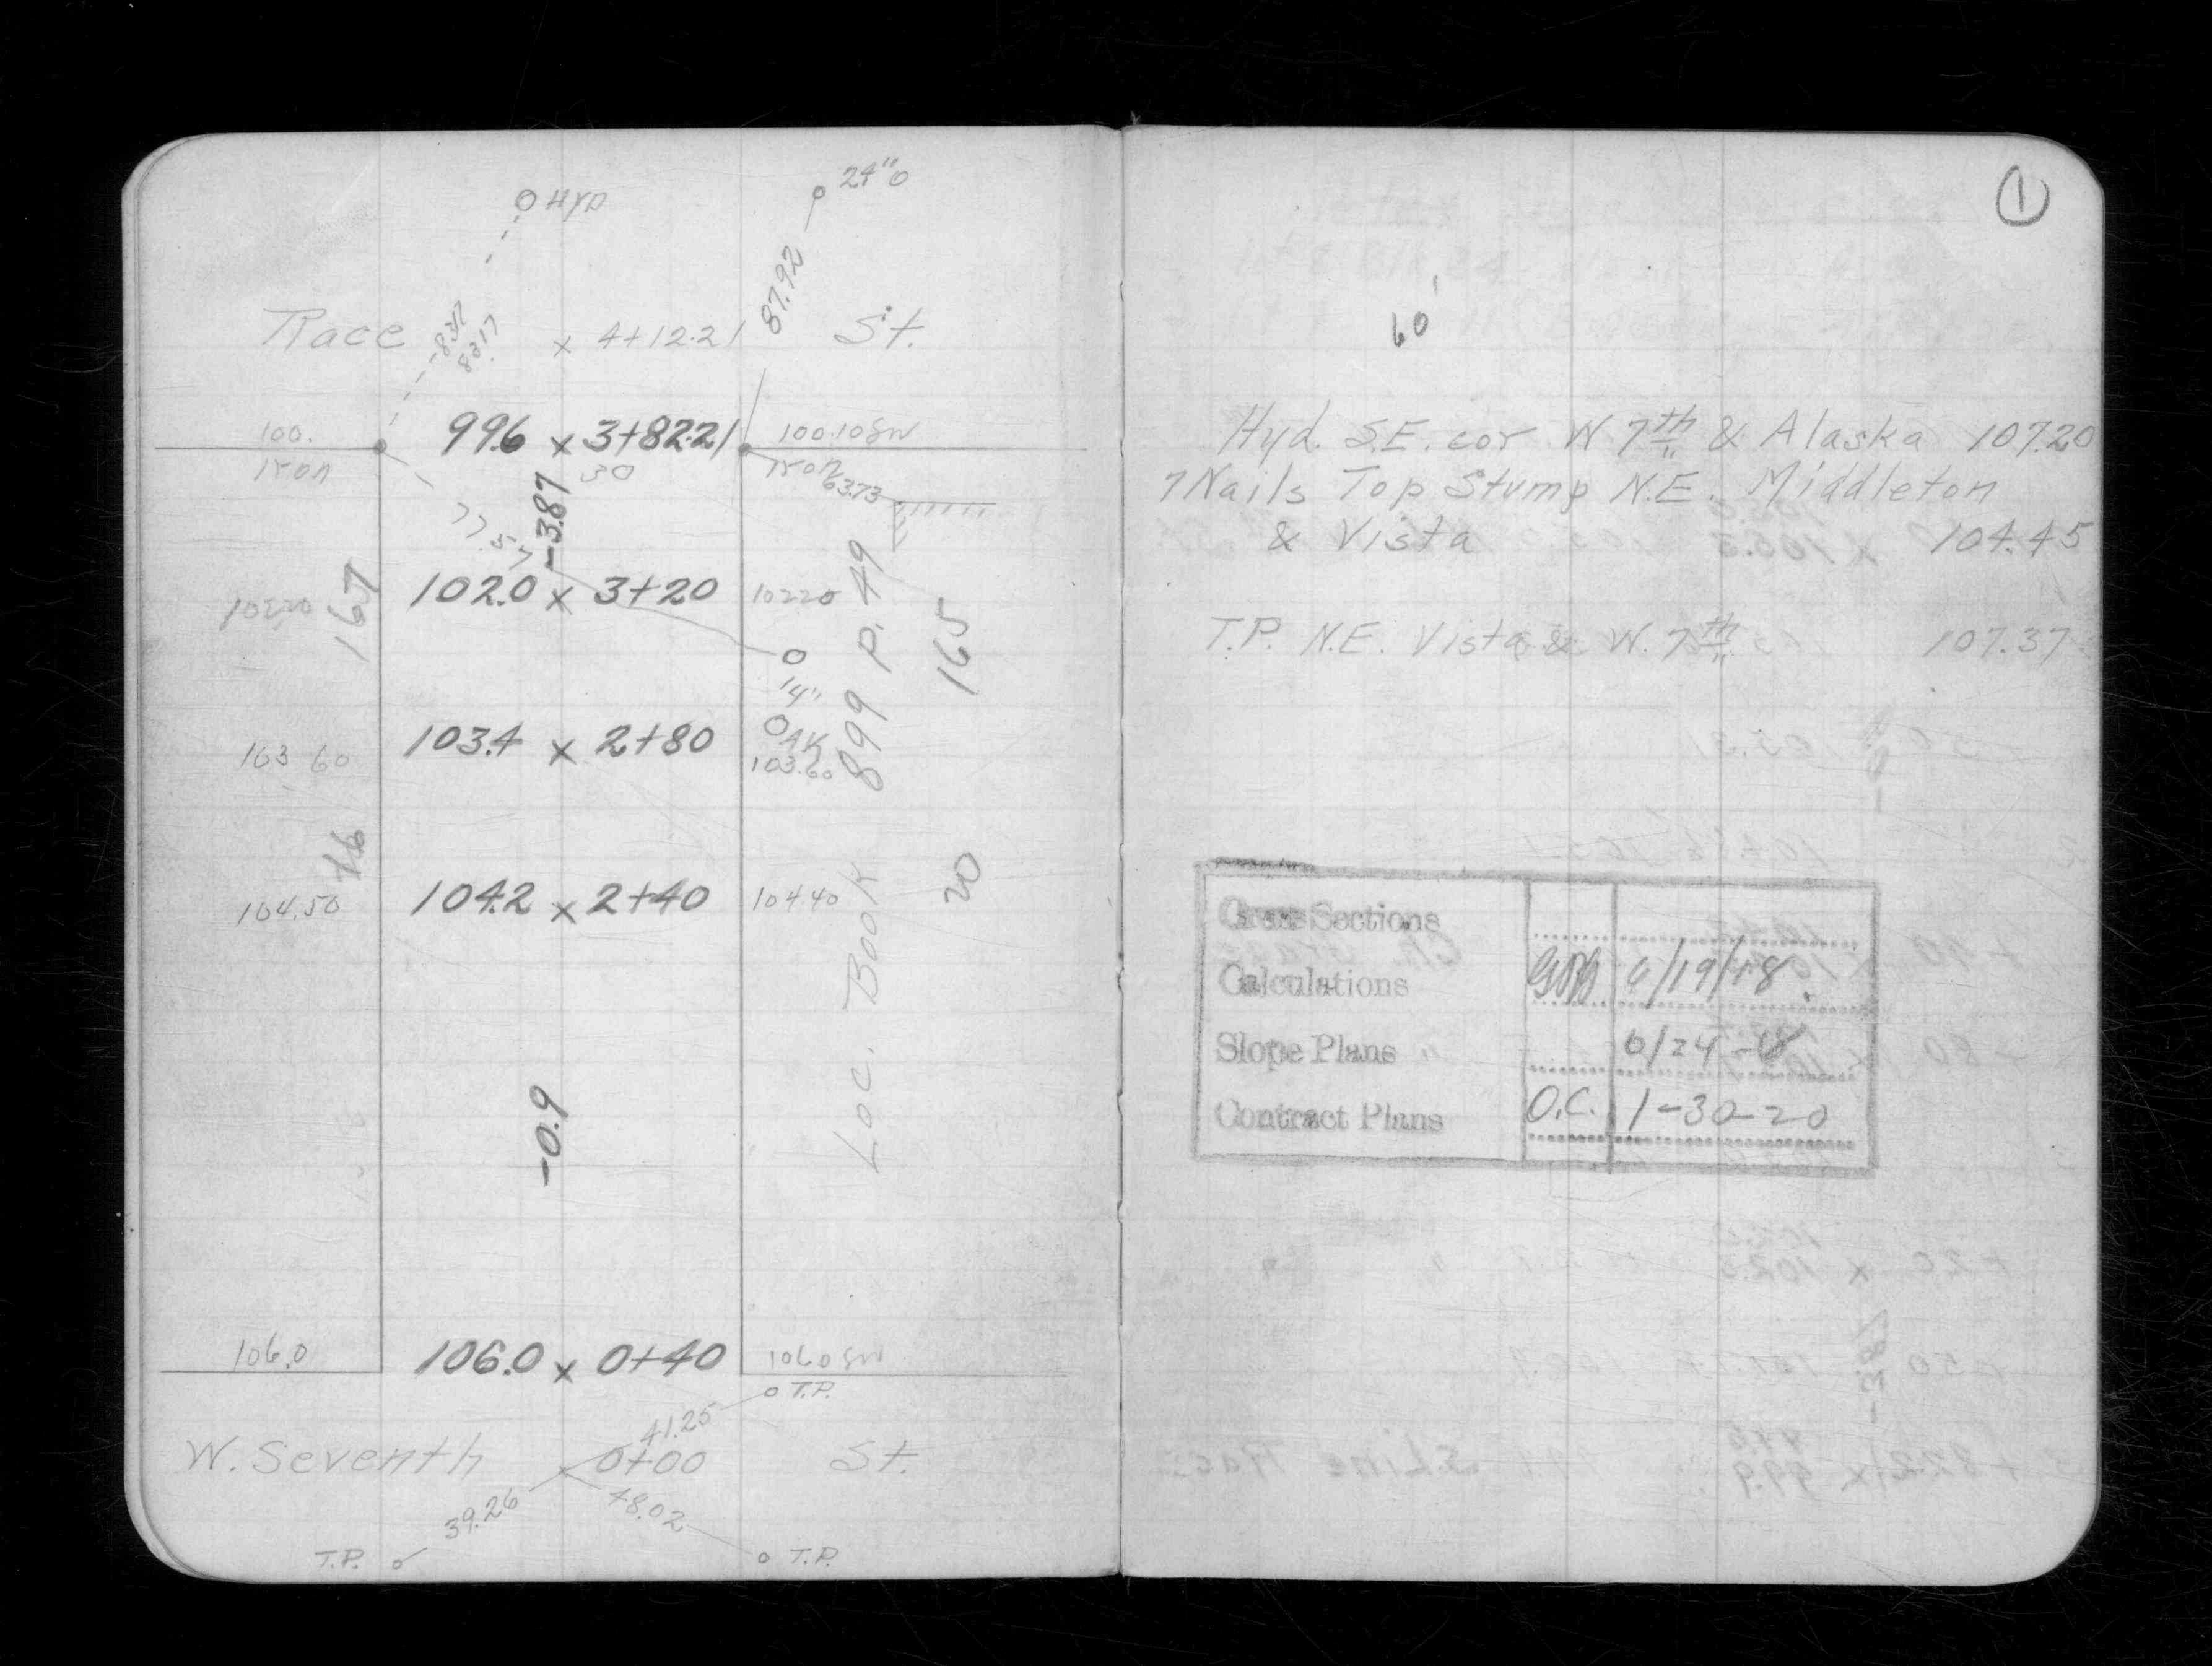 HYD
24"
87.92
Race 83.17 x 4+12.21 St.
83.17
100. 99.6 x 3+82.21 100.10 SW
Iron 30 Iron 63.73
77.57
-3.87
102.20 102.0 x 3+20 10220
167
165
14"
OAK
103 60 103.4 x 2+80 103.60
Loc. Book 899 P. 49
16
20
104.50 104.2 x 2+40 10440
-0.9
106.0 106.0 x 0+40 1060 SW
T.P.
41.25
W. Seventh 0+00 St.
39.26 48.02
T.P. T.P.
1
60'
Hyd. S.E. cor W 7th & Alaska 107.20
7 Nails Top Stump N.E. Middleton
& Vista 104.45
T.P. N.E. Vista & W. 7th 107.37
Cross Sections
Calculations 6/19/18
Slope Plans " 6/24-18
Contract Plans O.C. 1-30-20